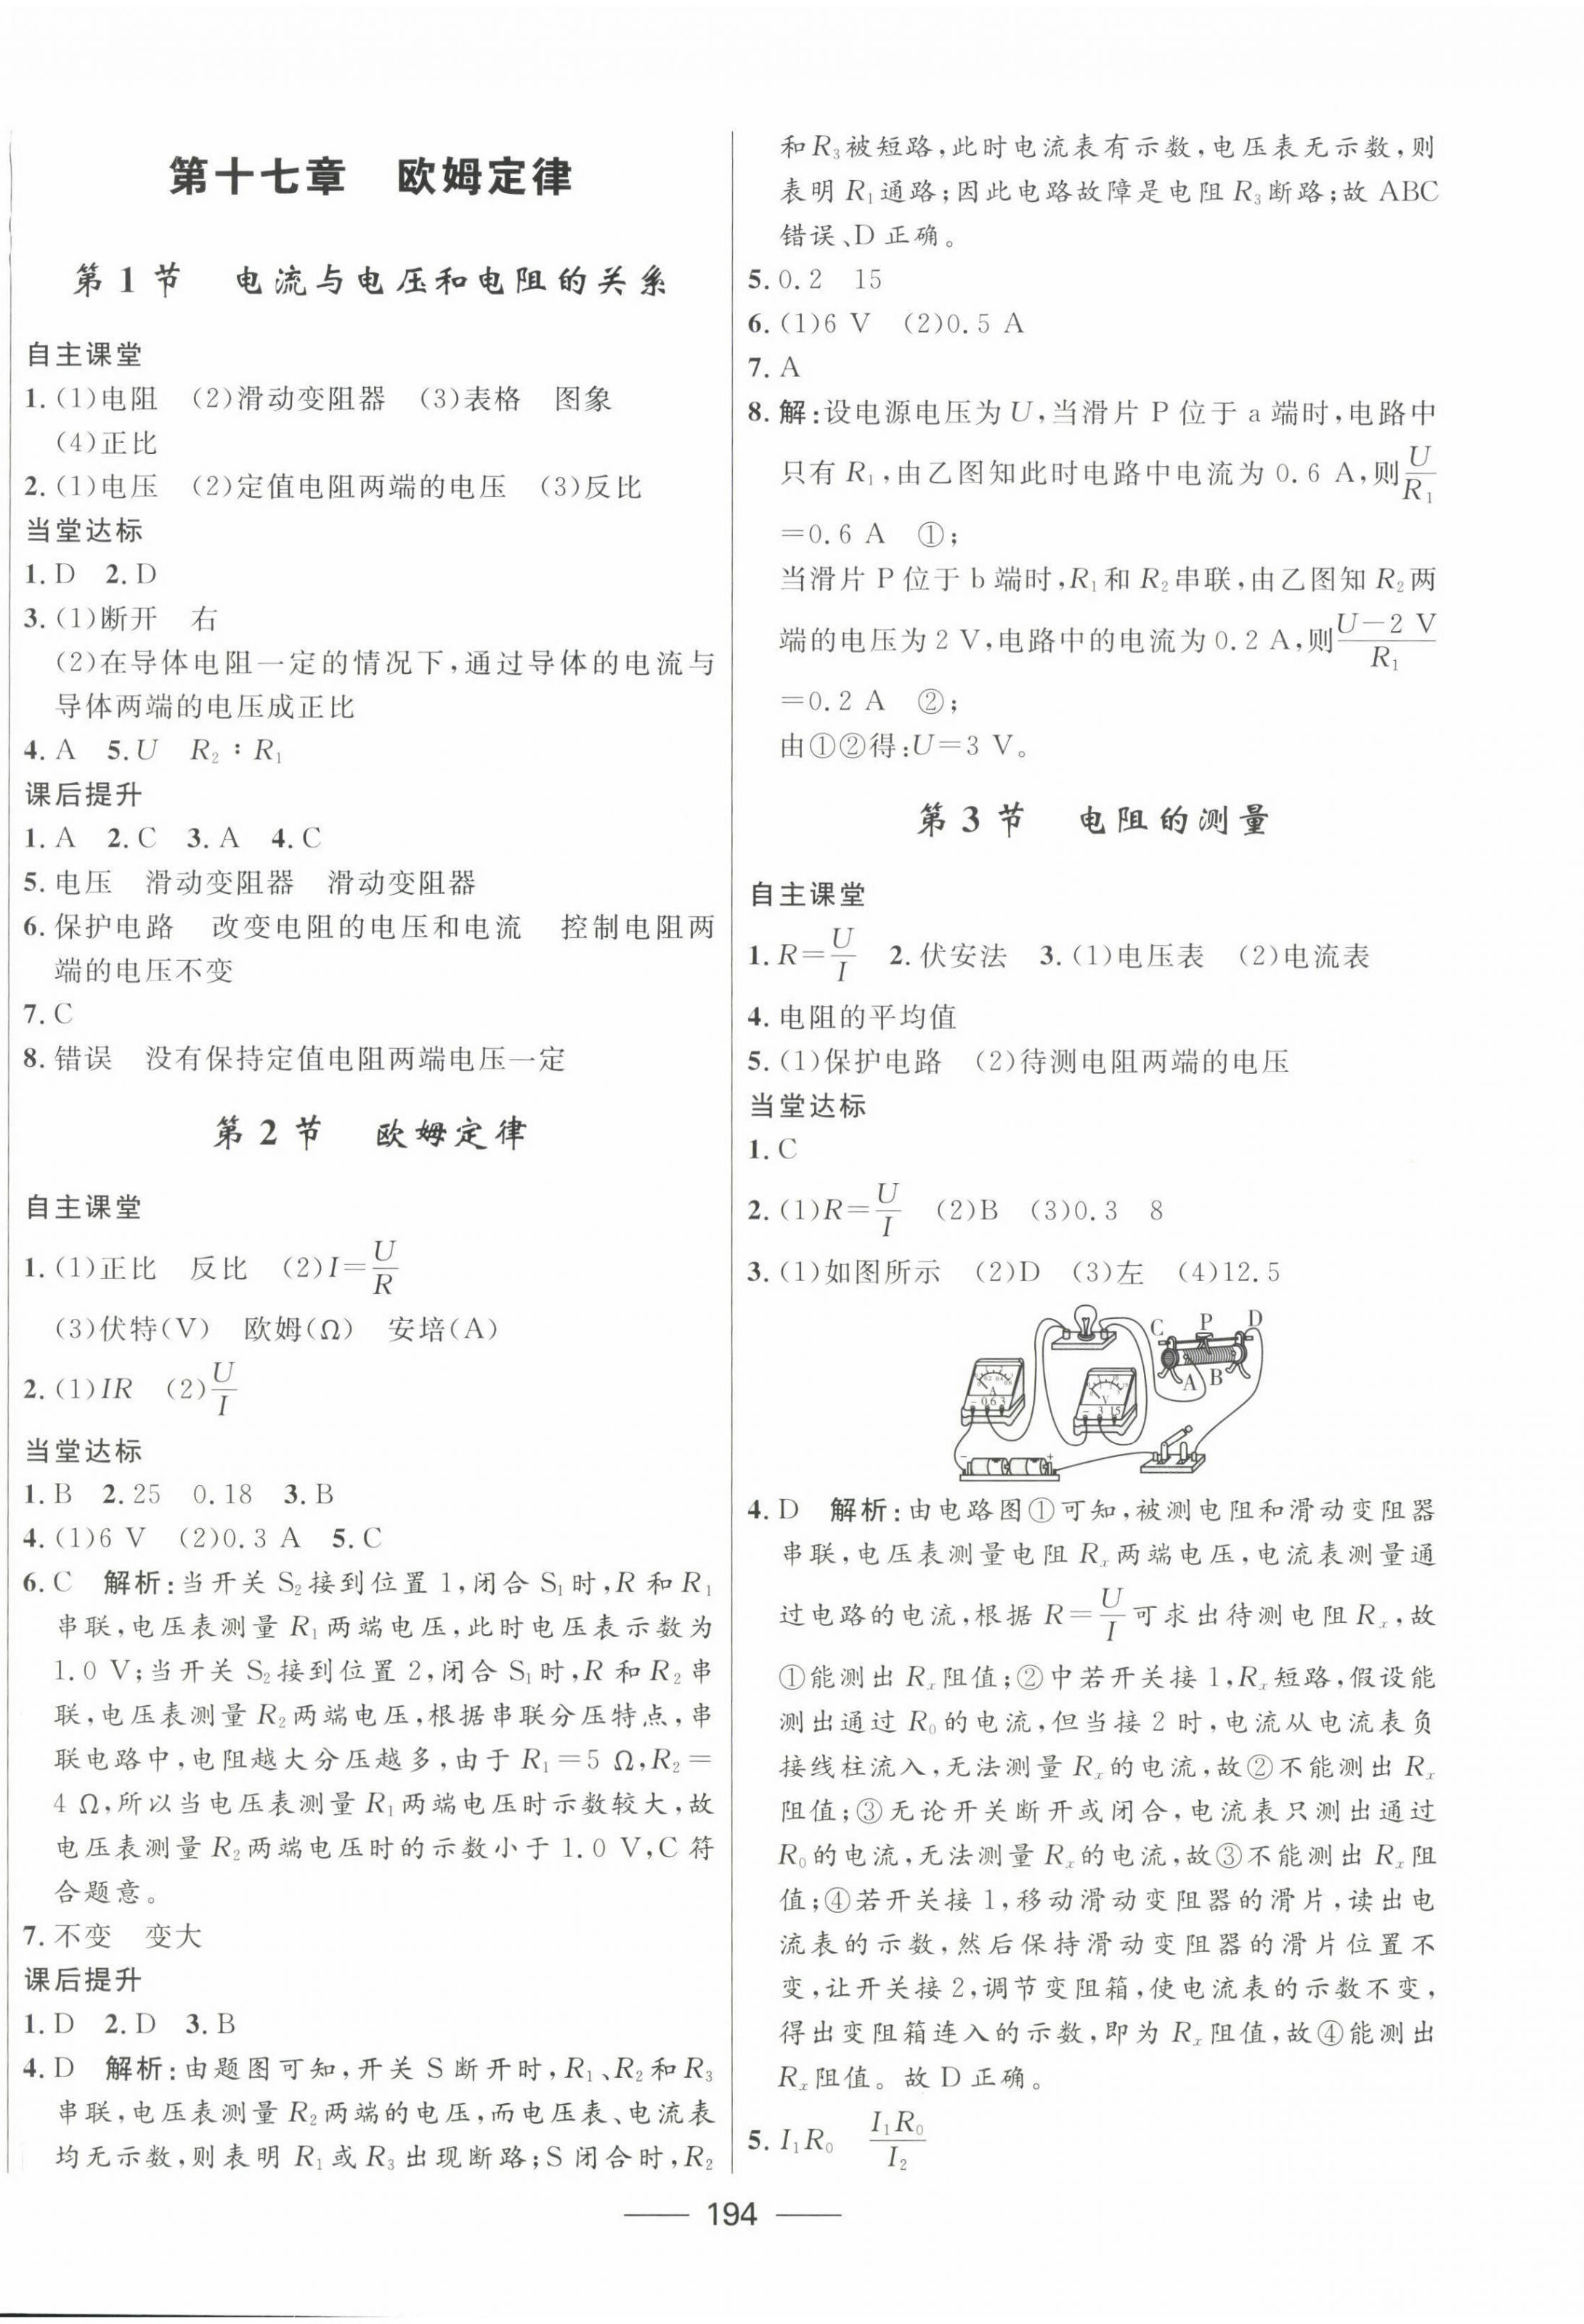 第十七章　欧姆定律
第1节　电流与电压和电阻的关系
自主课堂
1.(1)电阻　(2)滑动变阻器　(3)表格　图象
(4)正比
2.(1)电压　(2)定值电阻两端的电压　(3)反比
当堂达标
1.D　2.D
3.(1)断开　右
(2)在导体电阻一定的情况下,通过导体的电流与
导体两端的电压成正比
4.A　5.U　R₂∶R₁
课后提升
1.A　2.C　3.A　4.C
5.电压　滑动变阻器　滑动变阻器
6.保护电路　改变电阻的电压和电流　控制电阻两
端的电压不变
7.C
8.错误　没有保持定值电阻两端电压一定
第2节　欧姆定律
自主课堂
1.(1)正比　反比　(2)I=U/R
(3)伏特(V)　欧姆(Ω)　安培(A)
2.(1)IR　(2)U/I
当堂达标
1.B　2.25　0.18　3.B
4.(1)6 V　(2)0.3 A　5.C
6.C　解析:当开关S₂接到位置1,闭合S₁时,R和R₁
串联,电压表测量R₁两端电压,此时电压表示数为
1.0 V;当开关S₂接到位置2,闭合S₁时,R和R₂串
联,电压表测量R₂两端电压,根据串联分压特点,串
联电路中,电阻越大分压越多,由于R₁=5 Ω,R₂=
4 Ω,所以当电压表测量R₁两端电压时示数较大,故
电压表测量R₂两端电压时的示数小于1.0 V,C符
合题意。
7.不变　变大
课后提升
1.D　2.D　3.B
4.D　解析:由题图可知,开关S断开时,R₁、R₂和R₃
串联,电压表测量R₂两端的电压,而电压表、电流表
均无示数,则表明R₁或R₃出现断路;S闭合时,R₂
和R₃被短路,此时电流表有示数,电压表无示数,则
表明R₁通路;因此电路故障是电阻R₃断路;故ABC
错误、D正确。
5.0.2　15
6.(1)6 V　(2)0.5 A
7.A
8.解:设电源电压为U,当滑片P位于a端时,电路中
只有R₁,由乙图知此时电路中电流为0.6 A,则U/R₁
=0.6 A　①;
当滑片P位于b端时,R₁和R₂串联,由乙图知R₂两
端的电压为2 V,电路中的电流为0.2 A,则(U-2 V)/R₁
=0.2 A　②;
由①②得:U=3 V。
第3节　电阻的测量
自主课堂
1.R=U/I　2.伏安法　3.(1)电压表　(2)电流表
4.电阻的平均值
5.(1)保护电路　(2)待测电阻两端的电压
当堂达标
1.C
2.(1)R=U/I　(2)B　(3)0.3　8
3.(1)如图所示　(2)D　(3)左　(4)12.5
C P D
A B
A
- 0.6 3
V
- 3 15
- +
4.D　解析:由电路图①可知,被测电阻和滑动变阻器
串联,电压表测量电阻Rₓ两端电压,电流表测量通
过电路的电流,根据R=U/I可求出待测电阻Rₓ,故
①能测出Rₓ阻值;②中若开关接1,Rₓ短路,假设能
测出通过R₀的电流,但当接2时,电流从电流表负
接线柱流入,无法测量Rₓ的电流,故②不能测出Rₓ
阻值;③无论开关断开或闭合,电流表只测出通过
R₀的电流,无法测量Rₓ的电流,故③不能测出Rₓ阻
值;④若开关接1,移动滑动变阻器的滑片,读出电
流表的示数,然后保持滑动变阻器的滑片位置不
变,让开关接2,调节变阻箱,使电流表的示数不变,
得出变阻箱连入的示数,即为Rₓ阻值,故④能测出
Rₓ阻值。故D正确。
5.I₁R₀　I₁R₀/I₂
194